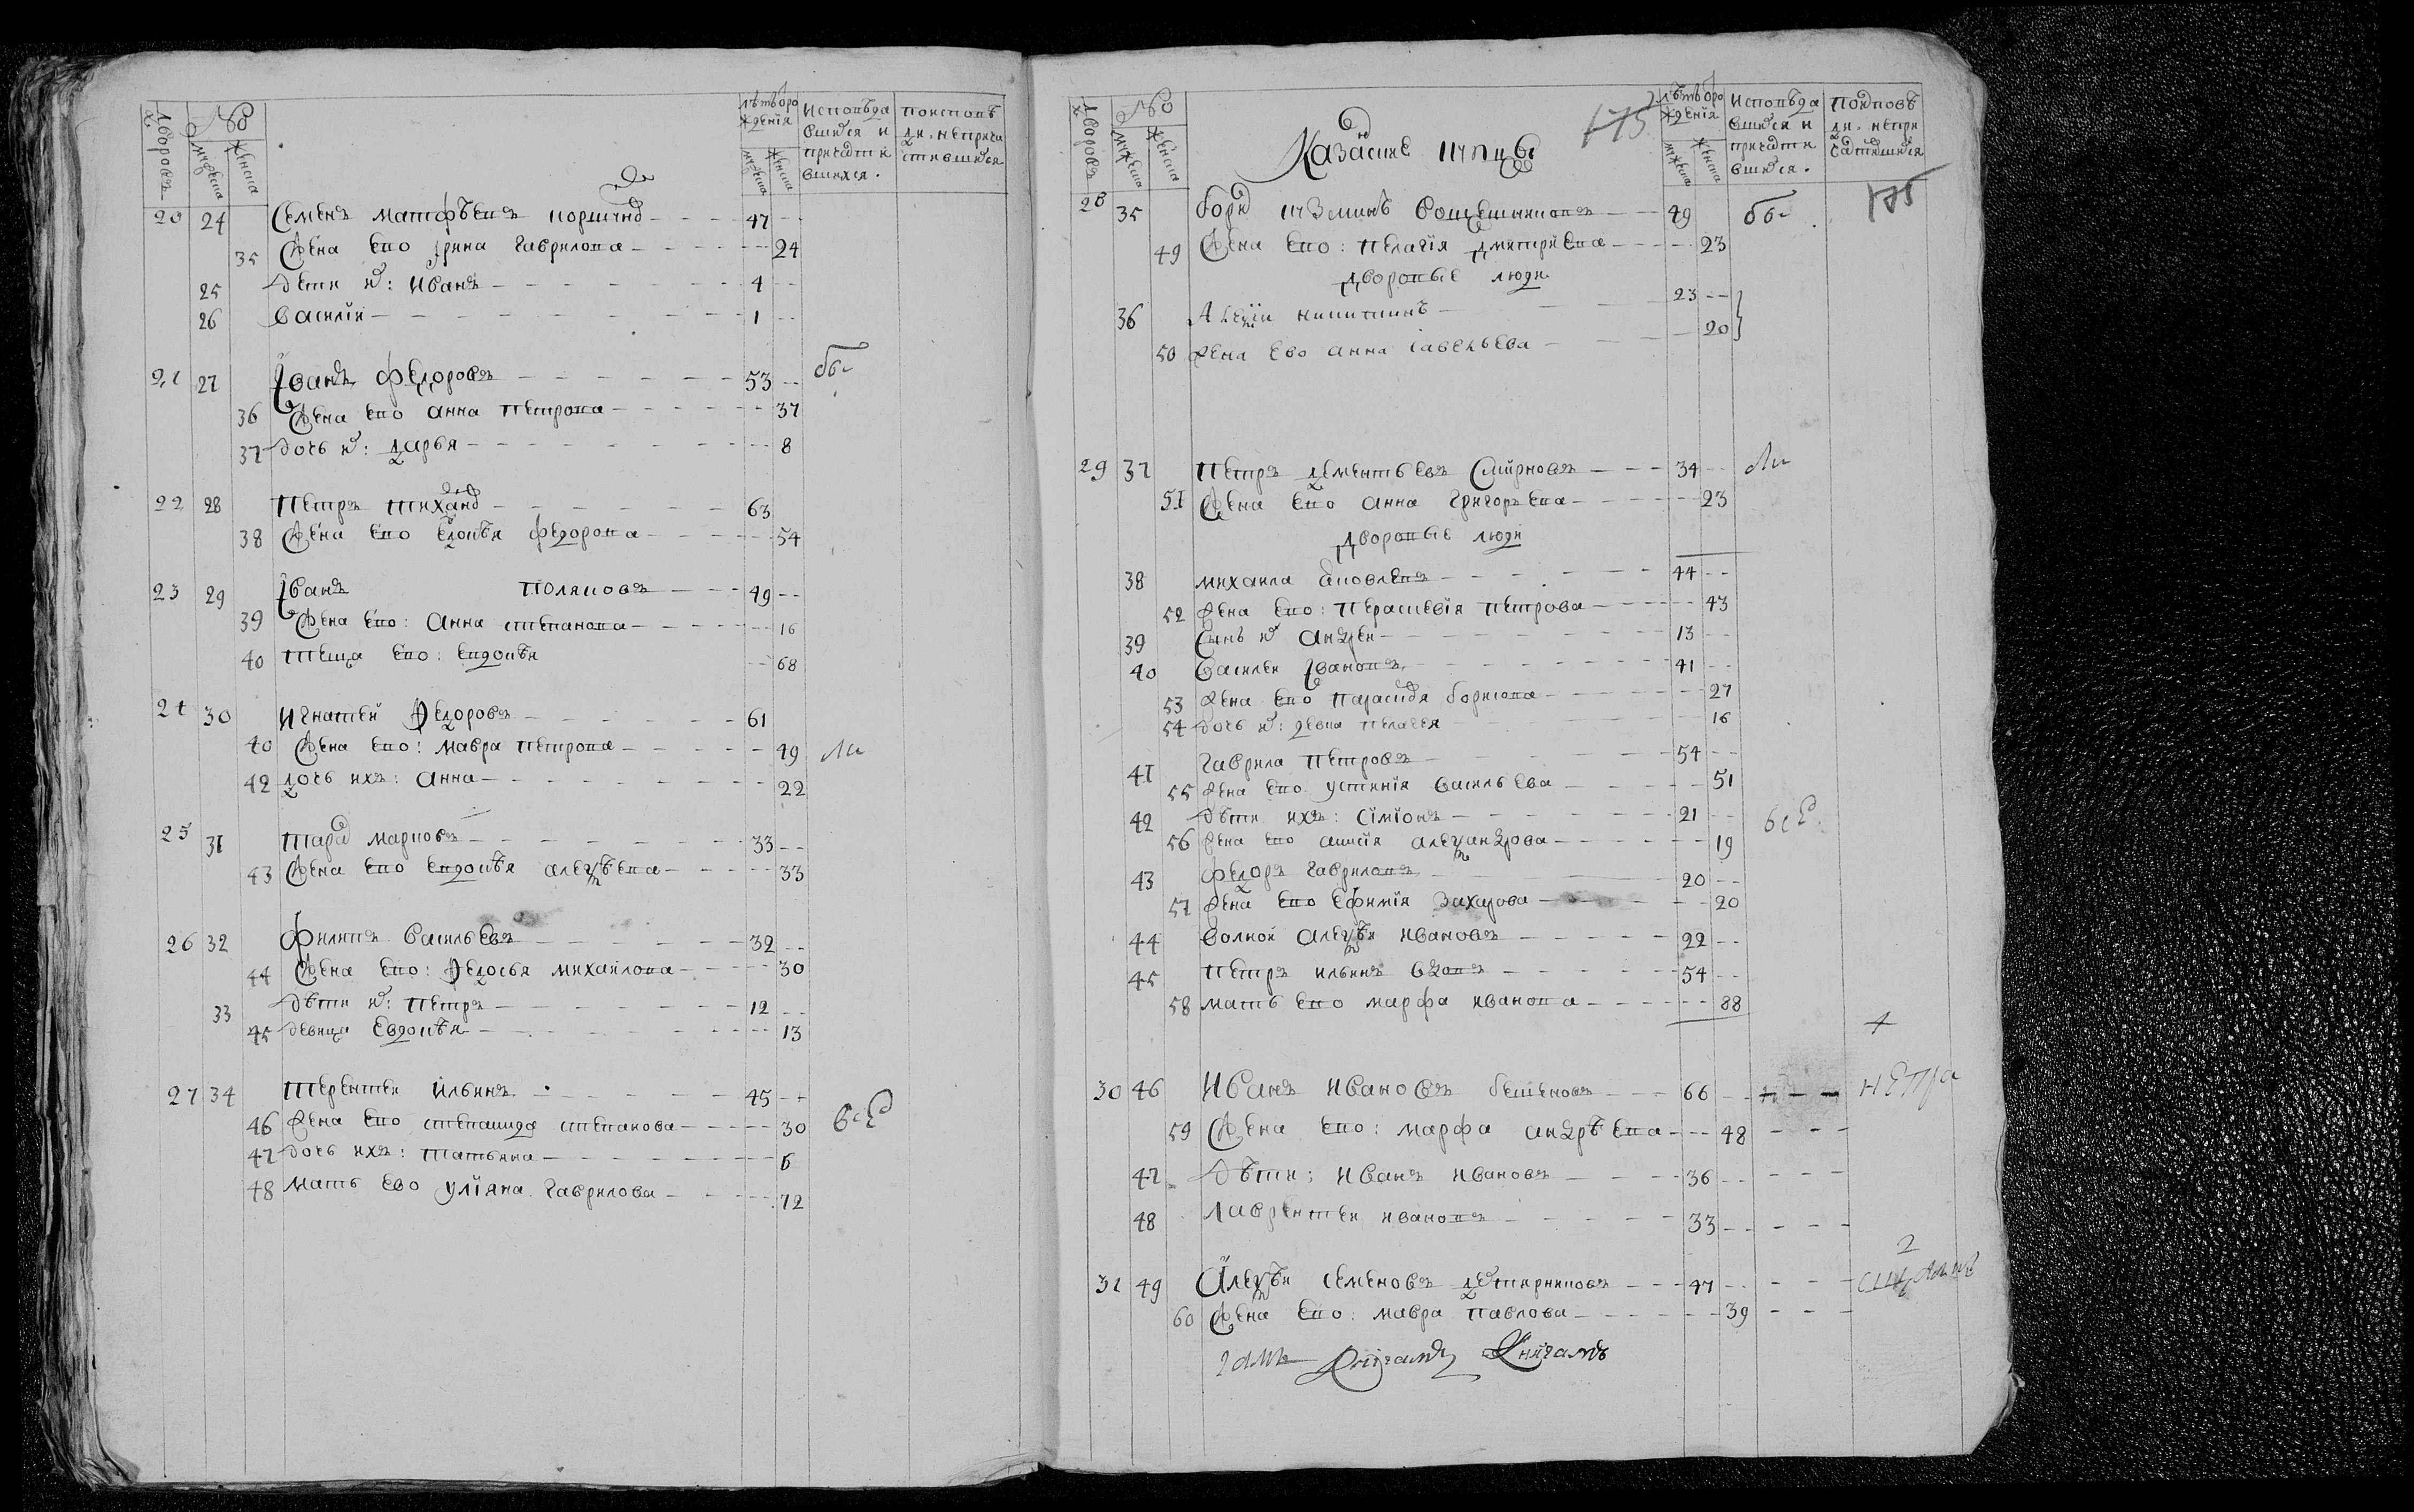 дворовъ № мужеска женска лѣтъ ѿ рождения мужеска женска исповѣдавшихся и причастившихся. по исповѣди не причастившихся
20 24 Семенъ матфѣевъ 47
35 Жена ево Ирина гаврилова 24
25 дети их: Иванъ 4
26 василий 1
21 27 Иванъ федоровъ 53 обс
36 Жена ево анна петрова 37
37 дочь их: дарья 8
22 28 Петръ тиханов 63
38 Жена ево евдокѣя федорова 54
23 29 Иванъ поляковъ 49
39 Жена ево: Анна степанова 16
40 теща ево: евдокѣя 68
24 30 Игнатей Федоровъ 61
40 Жена ево: мавра петрова 49 ли
42 дочь ихъ: Анна 22
25 31 Тарас марковъ 33
43 Жена ево евдокѣя алеѯѣева 33
26 32 Филипъ васильевъ 32
44 Жена ево: Федосья михайлова 30
33 дѣти их: петръ 12
45 девица Евдокѣя 13
27 34 Терентеи ильинъ 45
46 Жена ево степанида степанова 30 все
47 дочь ихъ: татьяна 6
48 мать ево улияна гаврилова 72
175
дворовъ № мужеска женска Казанские купцы лѣтъ ѿ рождения мужеска женска исповѣдавшихся и причастившихся. по исповѣди не причастившихся
175
28 35 борис кузминъ 49 обс
49 Жена ево: пелагия дмитриева 23
дворовые люди
36 Алеѯии никитинъ 23
50 Жена ево анна савельева 20
29 37 Петръ дементьевъ Смирновъ 34 ли
51 Жена ево анна григорьева 23
дворовые люди
38 михаила яковлевъ 44
52 Жена ево: параскевия петрова 43
39 Сынъ их андреи 13
40 василеи Ивановъ 41
53 Жена ево параскидя борисова 27
54 дочь их: девка пелагея 16
41 гаврила петровъ 54
55 Жена ево устиния васильева 51
42 дѣти ихъ: симионъ 21
56 Жена ево алеѯандрова 19 все
43 федоръ гавриловъ 20
57 Жена ево ефимия захарова 20
44 волной алеѯѣи ивановъ 22
45 петръ ильинъ 54
58 мать ево марфа иванова 88
30 46 Иванъ Ивановъ 66
59 Жена ево: марфа андрѣева 48
47 дѣти: Иванъ ивановъ 36
48 лаврентеи ивановъ 33
31 49 Алеѯѣи семеновъ 47 2
60 Жена ево: мавра павлова 39